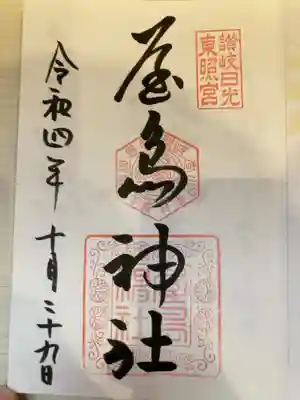 讃岐日光
東照宮
屋島神社
令和四年十月二十九日